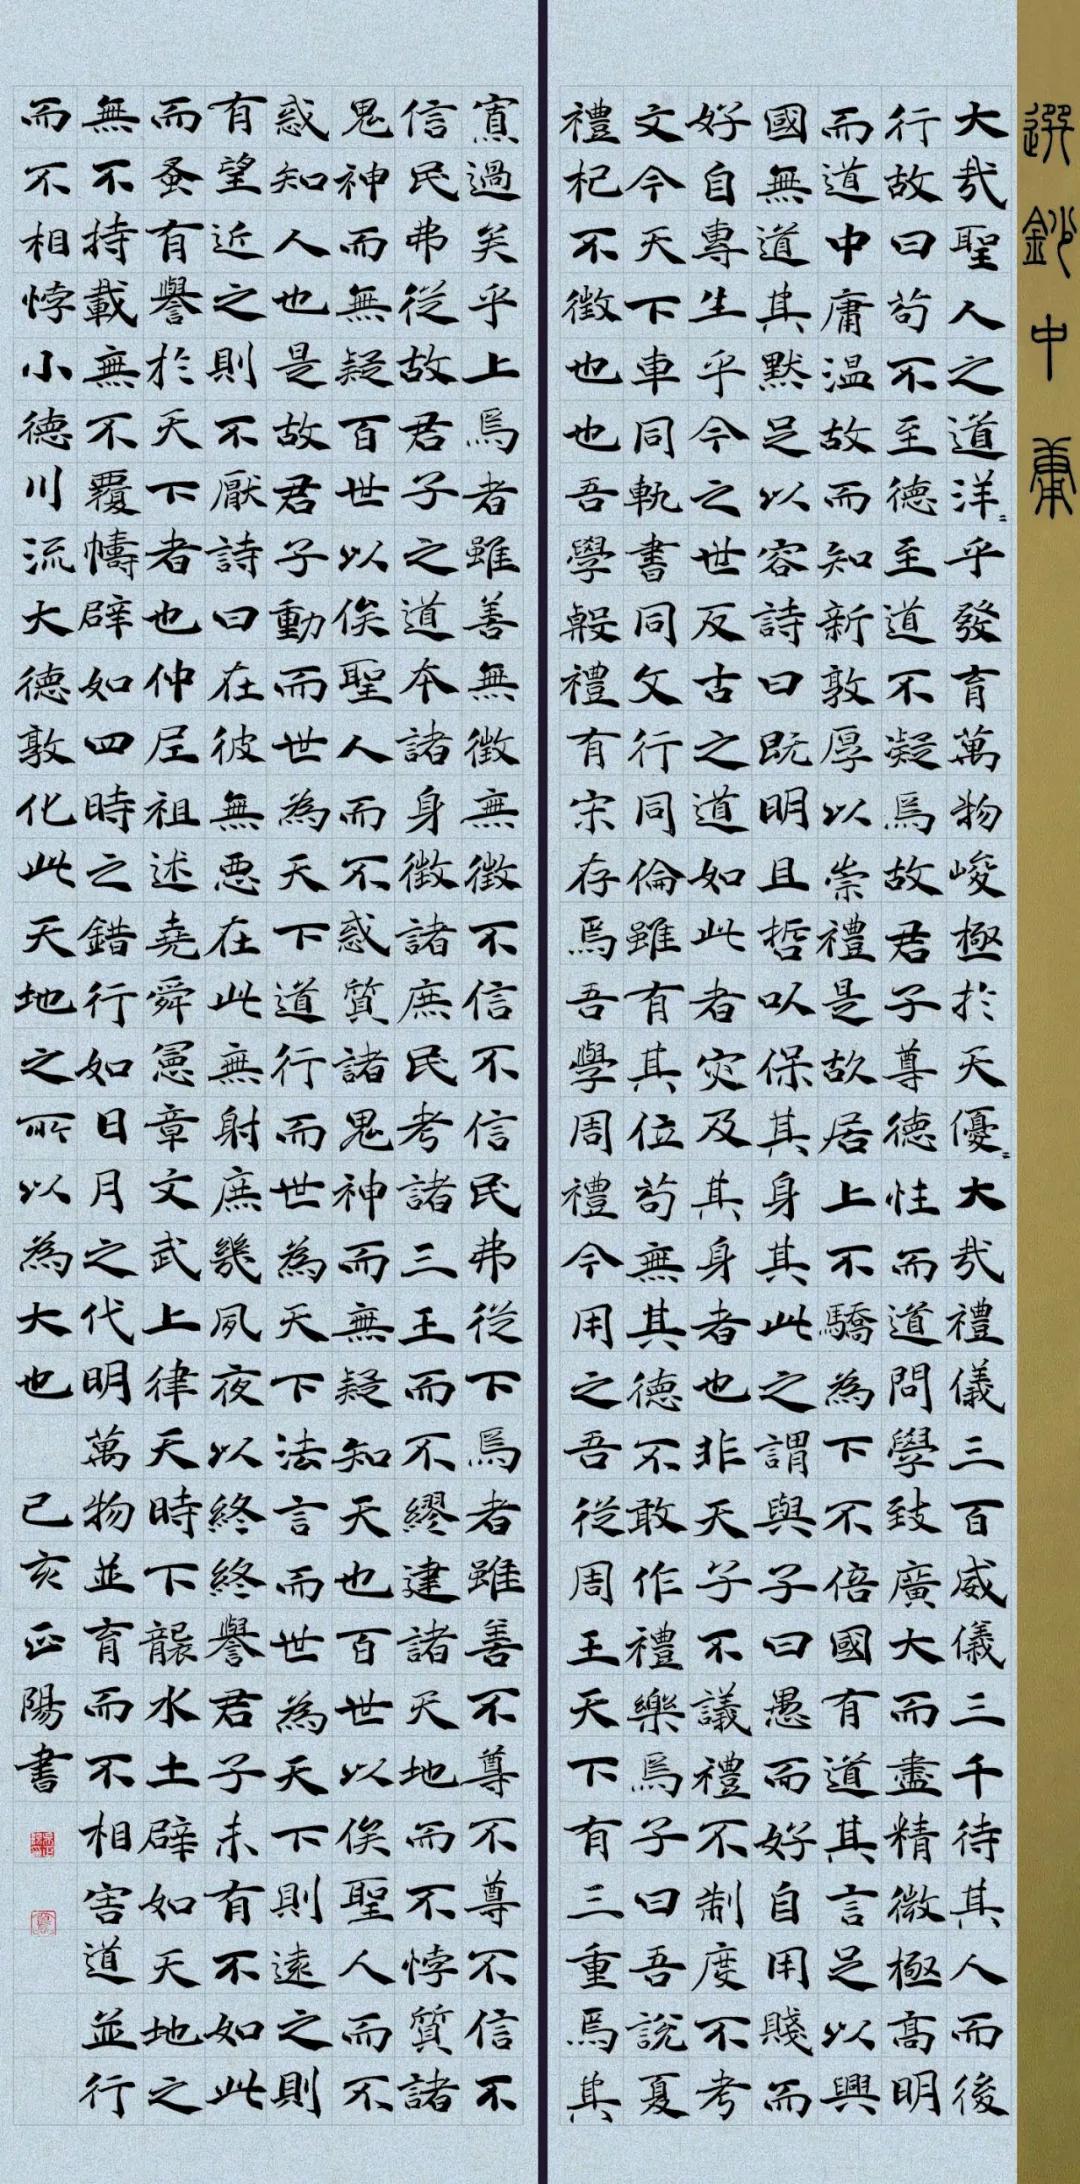 選鈔中庸
大哉聖人之道洋〻乎發育萬物峻極於天優〻大哉禮儀三百威儀三千待其人而後
行故曰苟不至德至道不凝焉故君子尊德性而道問學致廣大而盡精微極高明
而道中庸温故而知新敦厚以崇禮是故居上不驕為下不倍國有道其言足以興
國無道其默足以容詩曰既明且哲以保其身其此之謂與子曰愚而好自用賤而
好自專生乎今之世反古之道如此者灾及其身者也非天子不議禮不制度不考
文今天下車同軌書同文行同倫雖有其位苟無其德不敢作禮樂焉子曰吾說夏
禮杞不徵也也吾學殷禮有宋存焉吾學周禮今用之吾從周王天下有三重焉其
寡過矣乎上焉者雖善無徵無徵不信不信民弗從下焉者雖善不尊不尊不信不
信民弗從故君子之道本諸身徵諸庶民考諸三王而不繆建諸天地而不悖質諸
鬼神而無疑百世以俟聖人而不惑質諸鬼神而無疑知天也百世以俟聖人而不
惑知人也是故君子動而世為天下道行而世為天下法言而世為天下則遠之則
有望近之則不厭詩曰在彼無惡在此無射庶幾夙夜以終終譽君子未有不如此
而蚤有譽於天下者也仲尼祖述堯舜憲章文武上律天時下襲水土辟如天地之
無不持載無不覆幬辟如四時之錯行如日月之代明萬物並育而不相害道並行
而不相悖小德川流大德敦化此天地之所以為大也 己亥正陽書